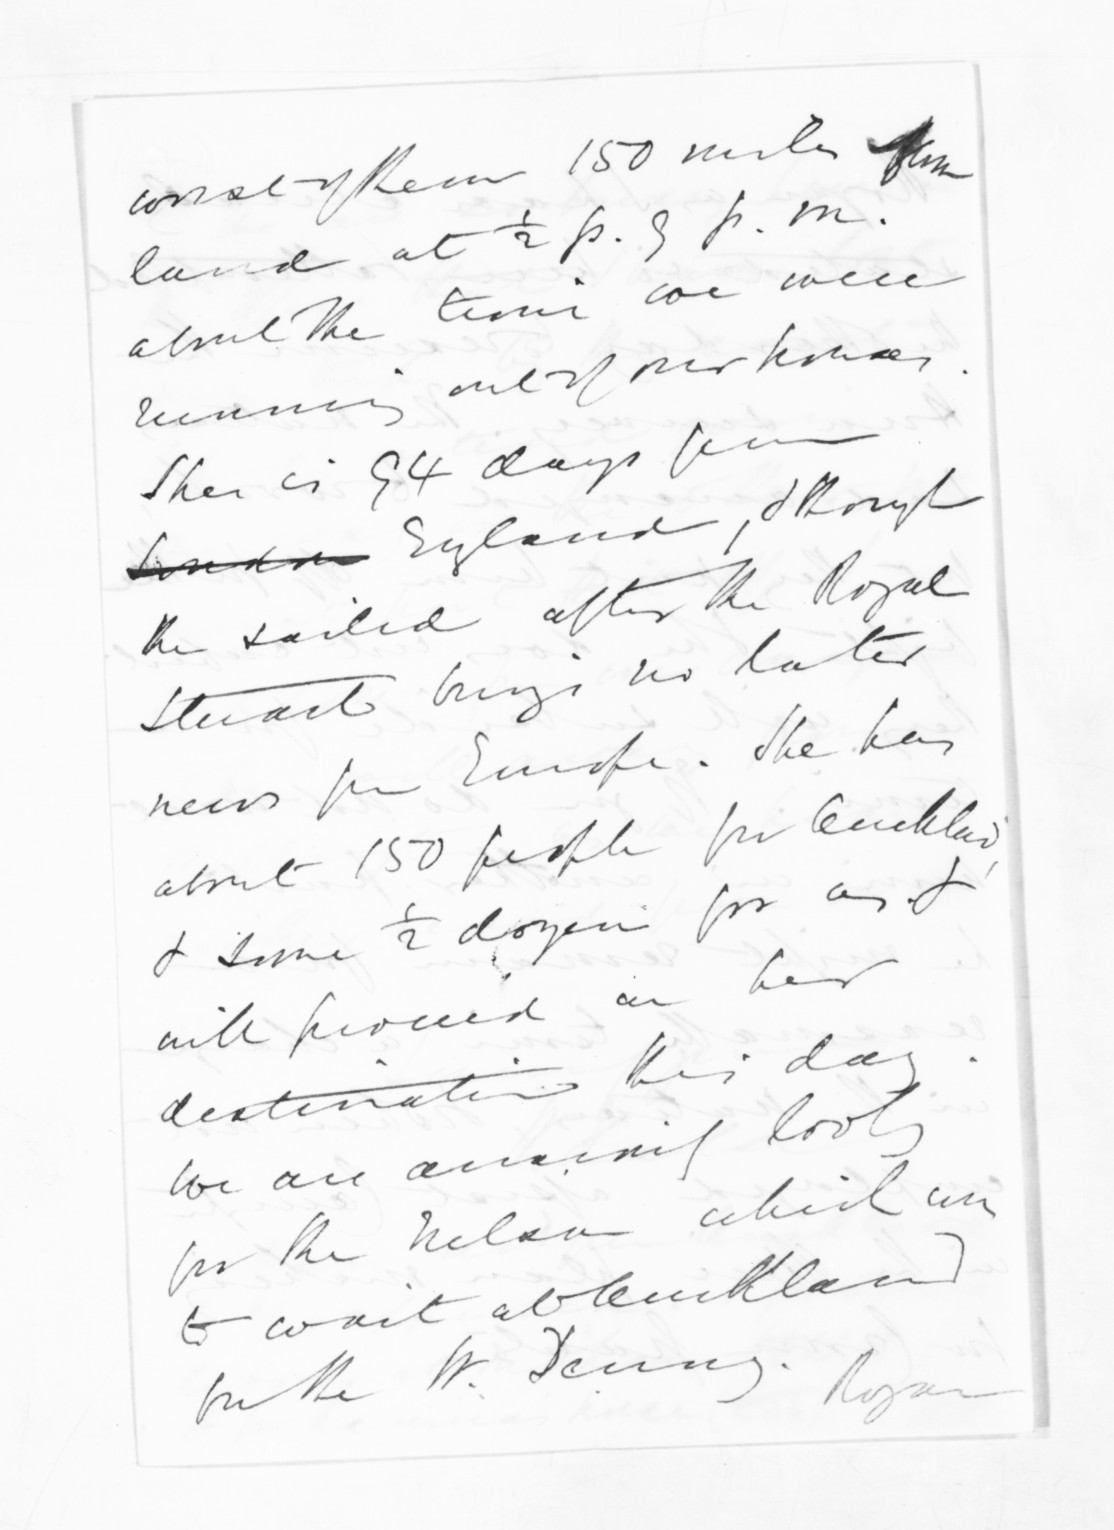 worst of them 150 miles from
land at ½ p. 9 p. m.
about the time we were
running out of our houses.
She is 94 days from
London England, & though
she sailed after the Royal
Stuart brings no later
news from Europe. She has
about 150 people for Auckland,
& some ½ dozen for us &
will proceed on her
destination this day.
We are anxiously looking
for the Nelson which was
to wait at Auckland
for the W. Denny. Rogan